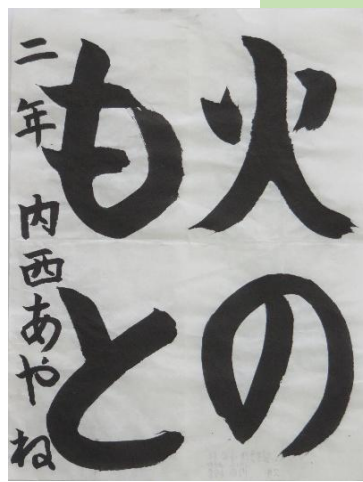 火の
もと
二年 内西あやね